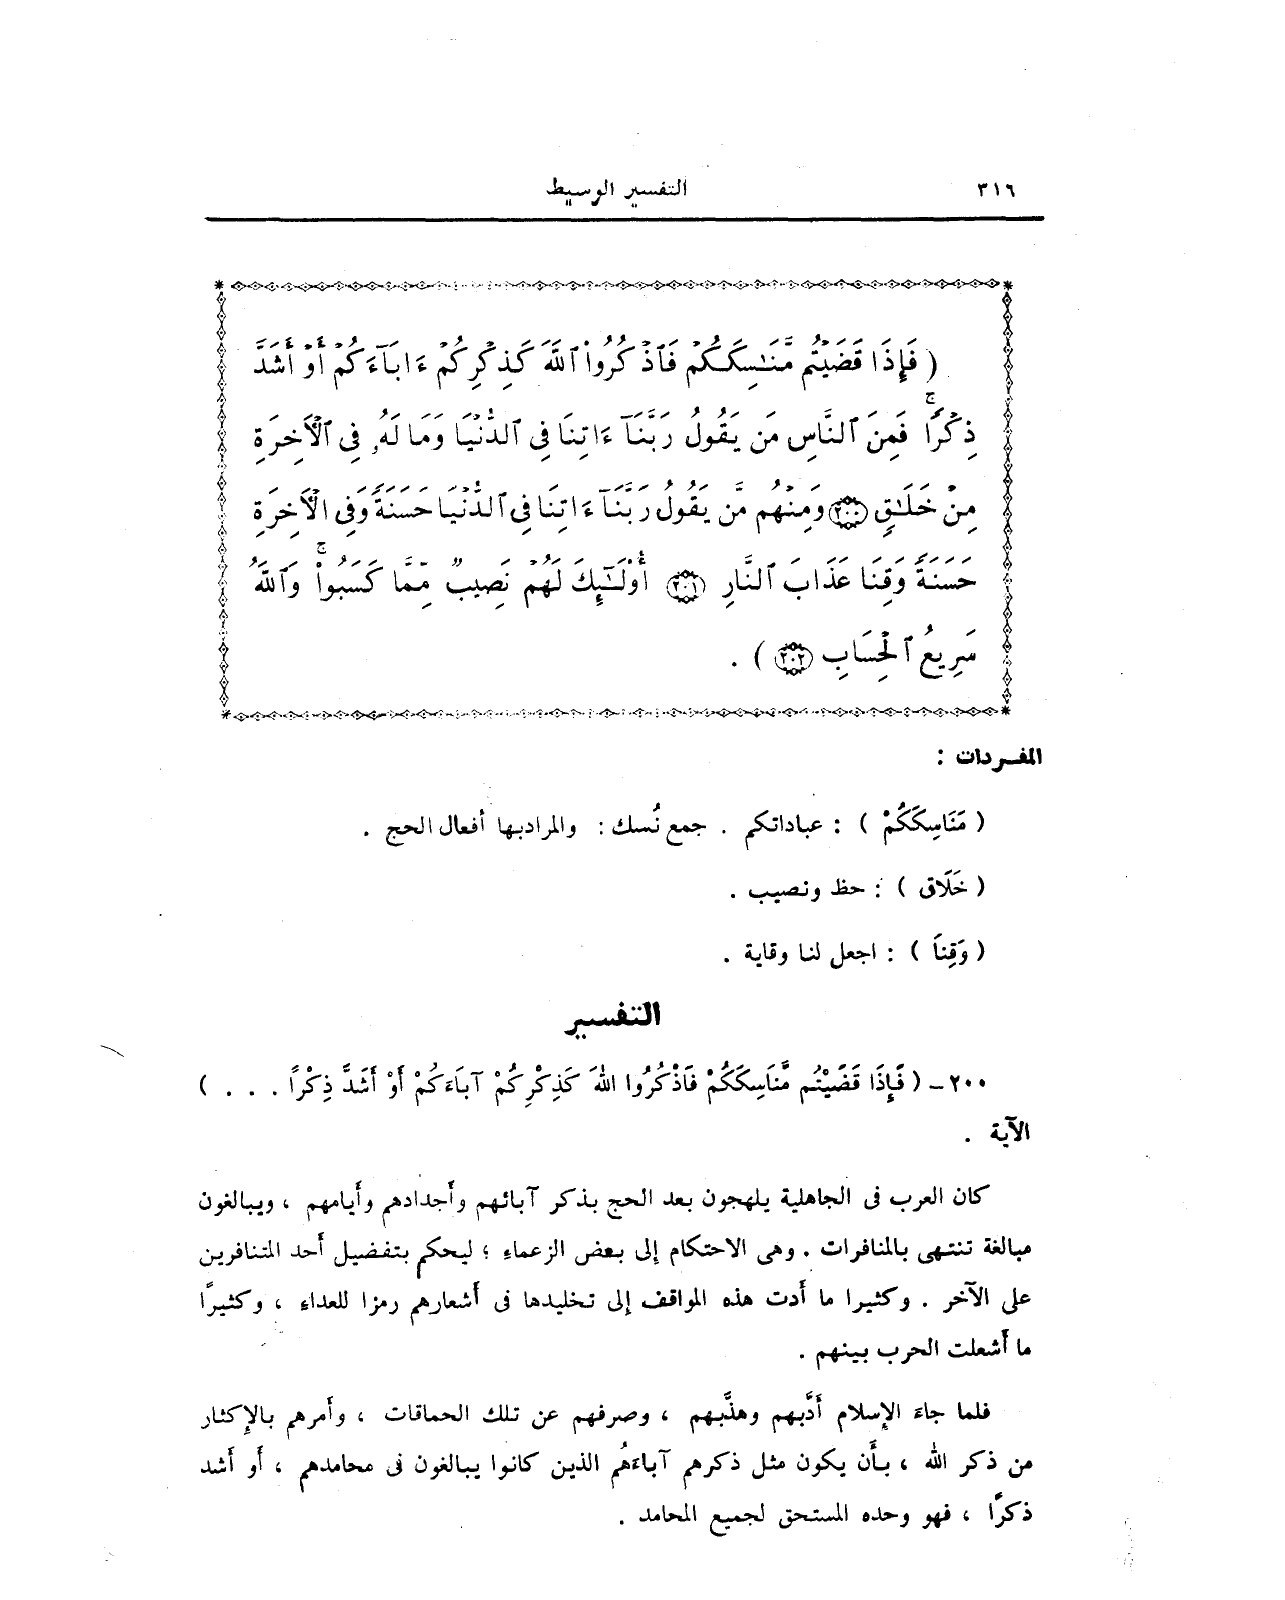 ٣١٦ التفسير الوسيط
( فَإِذَا قَضَيْتُم مَّنَٰسِكَكُمْ فَٱذْكُرُوا۟ ٱللَّهَ كَذِكْرِكُمْ ءَابَآءَكُمْ أَوْ أَشَدَّ
ذِكْرًا ۗ فَمِنَ ٱلنَّاسِ مَن يَقُولُ رَبَّنَآ ءَاتِنَا فِى ٱلدُّنْيَا وَمَا لَهُۥ فِى ٱلْآخِرَةِ
مِنْ خَلَٰقٍ ٢٠٠ وَمِنْهُم مَّن يَقُولُ رَبَّنَآ ءَاتِنَا فِى ٱلدُّنْيَا حَسَنَةً وَفِى ٱلْآخِرَةِ
حَسَنَةً وَقِنَا عَذَابَ ٱلنَّارِ ٢٠١ أُو۟لَٰٓئِكَ لَهُمْ نَصِيبٌ مِّمَّا كَسَبُوا۟ ۚ وَٱللَّهُ
سَرِيعُ ٱلْحِسَابِ ٢٠٢ ) .
المفردات :
( مَنَاسِكَكُمْ ) : عباداتكم . جمع نُسك : والمرادبها أفعال الحج .
( خَلَاق ) : حظ ونصيب .
( وَقِنَا ) : اجعل لنا وقاية .
التفسير
٢٠٠ - ( فَإِذَا قَضَيْتُم مَّنَاسِكَكُمْ فَاذْكُرُوا اللهَ كَذِكْرِكُمْ آبَاءَكُمْ أَوْ أَشَدَّ ذِكْرًا . . . )
الآية .
كان العرب فى الجاهلية يلهجون بعد الحج بذكر آبائهم وأجدادهم وأيامهم ، ويبالغون
مبالغة تنتهى بالمنافرات . وهى الاحتكام إلى بعض الزعماء ؛ ليحكم بتفضيل أحد المتنافرين
على الآخر . وكثيرا ما أدت هذه المواقف إلى تخليدها فى أشعارهم رمزا للعداء ، وكثيرًا
ما أشعلت الحرب بينهم .
فلما جاءَ الإسلام أدَّبهم وهذَّبهم ، وصرفهم عن تلك الحماقات ، وأمرهم بالإكثار
من ذكر الله ، بأن يكون مثل ذكرهم آباءَهُم الذين كانوا يبالغون فى محامدهم ، أو أشد
ذكرًا ، فهو وحده المستحق لجميع المحامد .